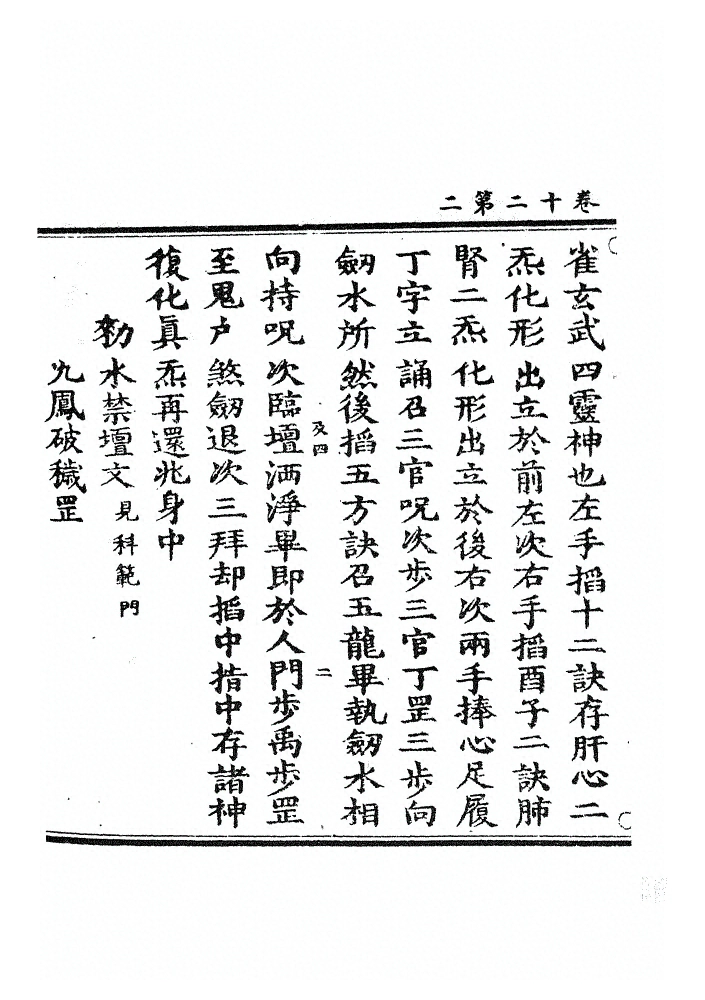 卷十二第二
雀玄武四靈神也左手搯十二訣存肝心二
炁化形出立於前左次右手搯酉子二訣肺
腎二炁化形出立於後右次兩手捧心足履
丁字立誦召三官呪次步三官丁罡三步向
劒水所然後搯五方訣召五龍畢執劒水相
及四
二
向持呪次臨壇洒淨畢即於人門步禹步罡
至鬼户煞劒退次三拜却搯中指中存諸神
復化眞炁再還兆身中
勑水禁壇文見科範門
九鳳破穢罡